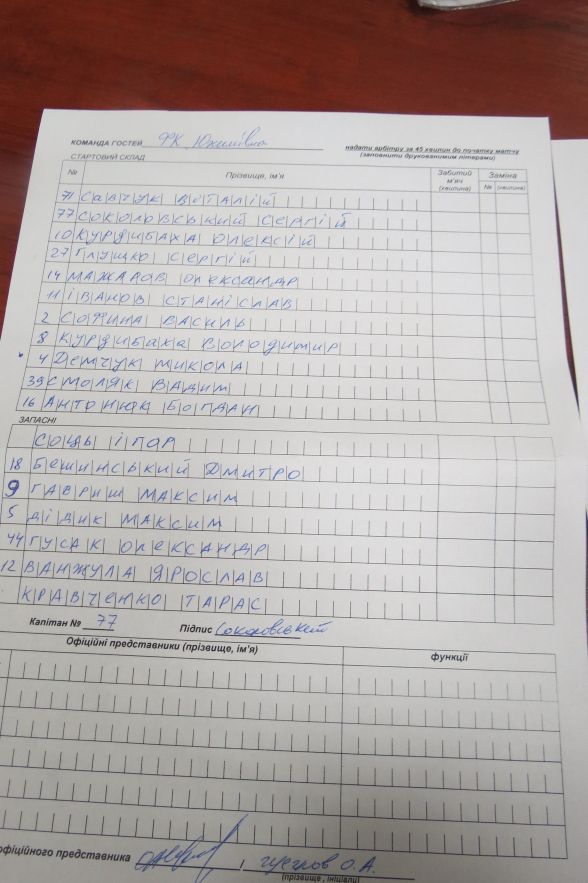 КОМАНДА ГОСТЕЙ ФК Южилівна
надати арбітру за 45 хвилин до початку матчу
(заповнити друкованими літерами)
СТАРТОВИЙ СКЛАД
№ Прізвище, ім'я Забитий м'яч (хвилина) Заміна № (хвилина)
71 САВЧУК ВІТАЛІЙ
77 СОКОЛОВСЬКИЙ СЕРГІЙ
10 КУРДИБАХА ОЛЕКСІЙ
27 ГЛУШКО СЕРГІЙ
14 МАЖАРОВ ОЛЕКСАНДР
11 ІВАНОВ СТАНІСЛАВ
2 СОФИНА ВАСИЛЬ
8 КУРДИБАХА ВОЛОДИМИР
4 ДЕМЧУК МИКОЛА
39 СМОЛЯК ВАДИМ
16 АНТОНЮК БОГДАН
ЗАПАСНІ
СОЦЬ ІГОР
18 БЕШИНСЬКИЙ ДМИТРО
9 ГАВРИШ МАКСИМ
5 ДІДИК МАКСИМ
44 ГУСАК ОЛЕКСАНДР
12 ВАНЖУЛА ЯРОСЛАВ
КРАВЧЕНКО ТАРАС
Капітан № 77 Підпис Соколовський
Офіційні представники (прізвище, ім'я) функції
офіційного представника / О.А.
(прізвище, ініціали)